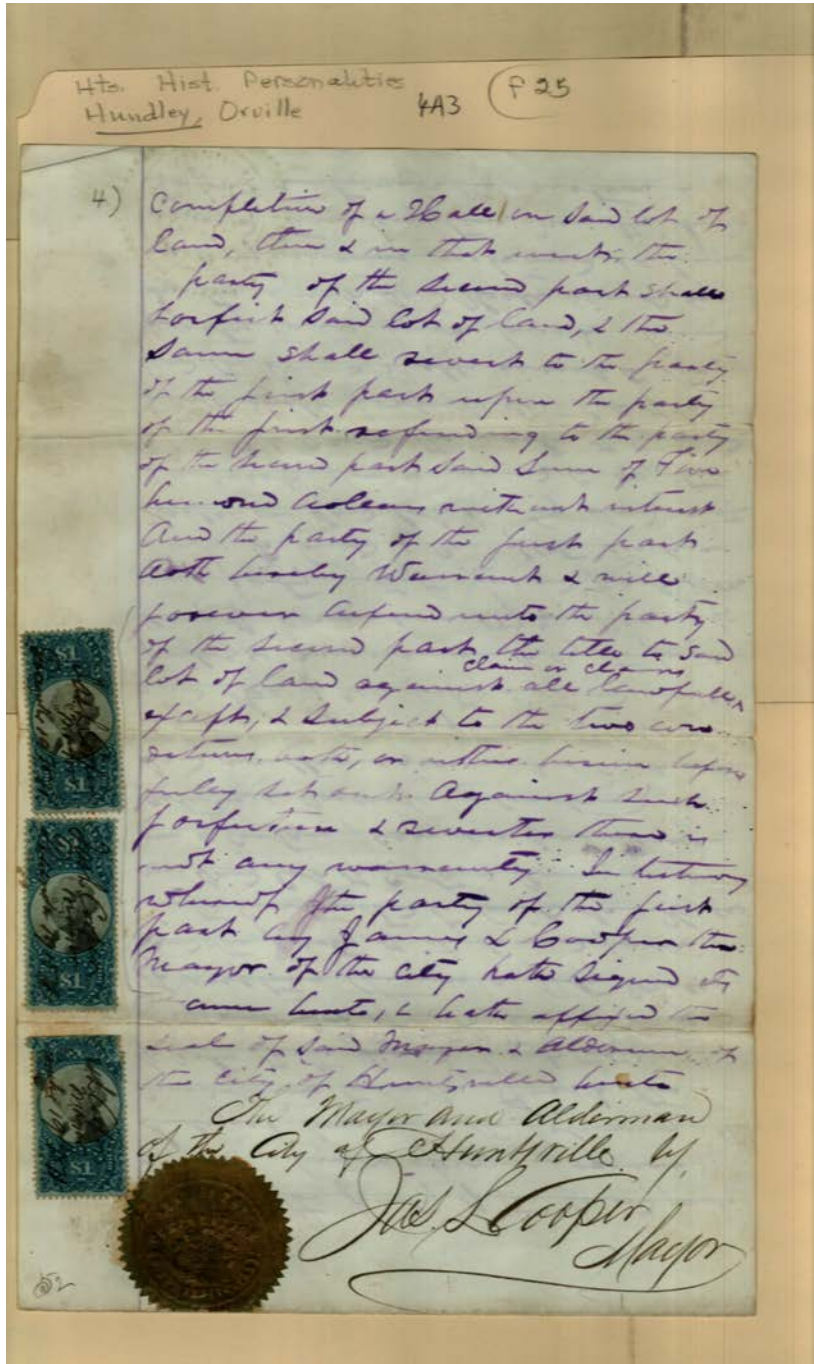 Hts. Hist. Personalities
Hundley, Orville 4A3 F25
4)
Completion of a Hall on said lot of
land, then & in that event, the
party of the second part shall
forfeit said lot of land, & the
same shall revert to the party
of the first part upon the party
of the first refunding to the party
of the second part said sum of Five
hundred dollars without interest
And the party of the first part
doth hereby Warrant & will
forever defend unto the party
of the second part the title to said
claim or claims
lot of land against all lawful
except, & subject to the two con
ditions herein before
fully set out. Against such
forfeiture & reverter there is
not any warranty. In testimony
whereof the party of the first
part by James L Cooper the
Mayor of the city hath signed its
name hereto, & hath affixed the
seal of said Mayor & Aldermen of
the city of Huntsville hereto
The Mayor and Alderman
of the City of Huntsville by
Jas. L Cooper
Mayor
$1
$1
$1